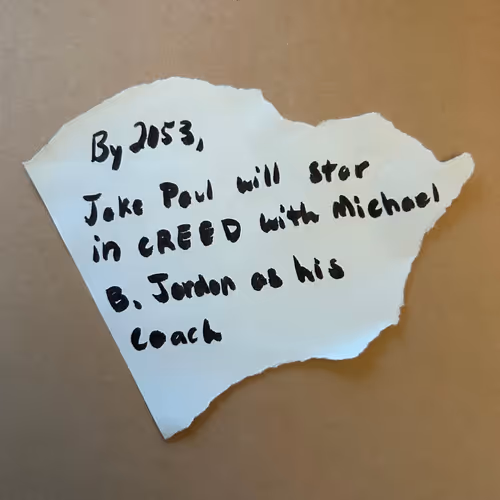 By 2053,
Jake Paul will star
in CREED with Michael
B. Jordan as his
coach